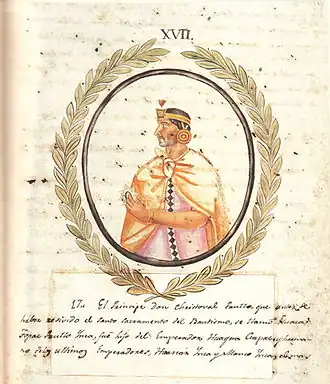 XVII.
El Principe don Christoval Paullo, que antes de
haber recivido el Santo Sacramento del Bautismo, se llamó
Topac Paullo Inca, fué hijo del Emperador Huayna Capac, y herma
no de los ultimos Emperadores, Huascar Inca y Manco Inca